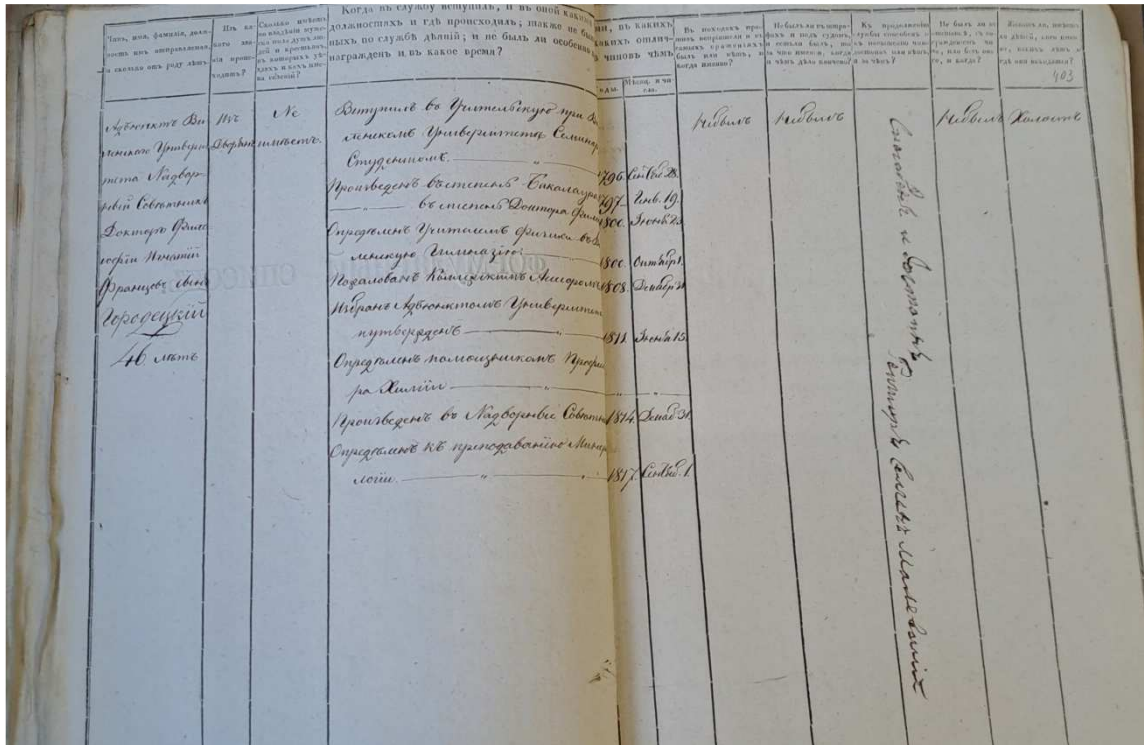 Чинъ, имя, фамилія, должность имъ отправляемая, и сколько отъ роду лѣтъ?
Изъ какого званія происходитъ?
Сколько имѣетъ во владѣніи мужеска пола душъ людей и крестьянъ, въ которыхъ уѣздахъ и какъ имена селеній?
Когда въ службу вступилъ, и въ оной какими
должностяхъ и гдѣ происходилъ; также не бы
ныхъ по службѣ дѣяній; и не былъ ли особенно
награжденъ и въ какое время?
въ какихъ
какихъ отлич-
чиновъ чѣмъ
Годы.
Мѣсяц. и числа.
Въ походахъ противъ непріятеля и въ самыхъ сраженіяхъ былъ или нѣтъ, и когда именно?
Не былъ ли въ штрафахъ и подъ судомъ, и естьли былъ, то за что именно, когда и чѣмъ дѣло кончено?
Къ продолженію службы способенъ и къ повышенію чина достоинъ или нѣтъ, и за чѣмъ?
Не былъ ли въ отставкѣ, съ награжденіемъ чина, или безъ онаго, и когда?
Женатъ ли, имѣетъ ли дѣтей, кого именно, какихъ лѣтъ и гдѣ они находятся?
403
Адъюнктъ Ви-
ленскаго Универси-
тета Надвор-
ный Совѣтникъ
Докторъ Фило-
софіи Игнатій
Францовъ сынъ
Городецкій
46 лѣтъ
Изъ
Дворянъ
Не
имѣетъ.
Вступилъ въ Учительскую при Ви
ленскомъ Университетѣ Семинар
Студентомъ. 1796. Сентяб. 28.
Произведенъ въ степень Бакалавра 1797 Янв. 19.
въ степень Доктора Фило 1800. Іюня 29
Опредѣленъ Учителемъ Физики въ Ви
ленскую Гимназію 1800. Октября 1.
Пожалованъ Коллежскимъ Ассесоромъ 1808. Декабр 31
Избранъ Адъюнктомъ Университета
и утвержденъ 1811. Іюня 15.
Опредѣленъ помощникомъ Професс
ра Химіи
Произведенъ въ Надворные Совѣтни 1814. Декаб. 31.
Опредѣленъ къ преподаванію Минера
логіи. 1817. Сентяб. 1.
Небылъ
Небылъ
Способенъ и Достоинъ
Ректоръ Симонъ Малевскій
Небылъ
Холостъ